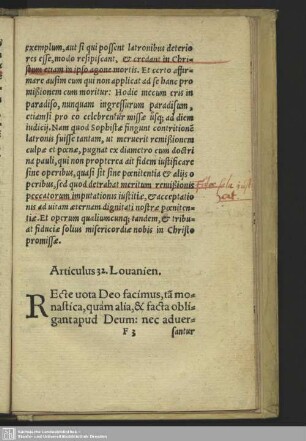 exemplum, aut si qui possent latronibus deterio-
res esse, modo resipiscant, & credant in Chri-
stum etiam in ipso agone mortis. Et certo affir-
mare ausim eum qui non applicat ad se hanc pro
mißionem cum moritur: Hodie mecum eris in
paradiso, nunquam ingressurum paradisum,
etiamsi pro eo celebrentur missæ usq; ad diem
iudicij. Nam quod Sophistæ fingunt contritionẽ
latronis fuisse tantam, ut meruerit remißionem
culpæ et pœnæ, pugnat ex diametro cum doctri
na pauli, qui non propterea ait fidem iustificare
sine operibus, quasi sit sine pœnitentia & alijs o
peribus, sed quod detrahat meritum remißionis
peccatorum imputationis iustitiæ, & acceptatio
nis ad uitam æternam dignitati nostræ pœniten-
tiæ. Et operum qualiumcunq; tandem, & tribu-
at fiduciæ solius misericordiæ nobis in Christo
promissæ.
Fides sola
Articulus 32. Louanien.
REcte uota Deo facimus, tã mo-
nastica, quàm alia, & facta obli-
gant apud Deum: nec aduer-
F 3 santur
Sächsische Landesbibliothek -
Staats- und Universitätsbibliothek Dresden